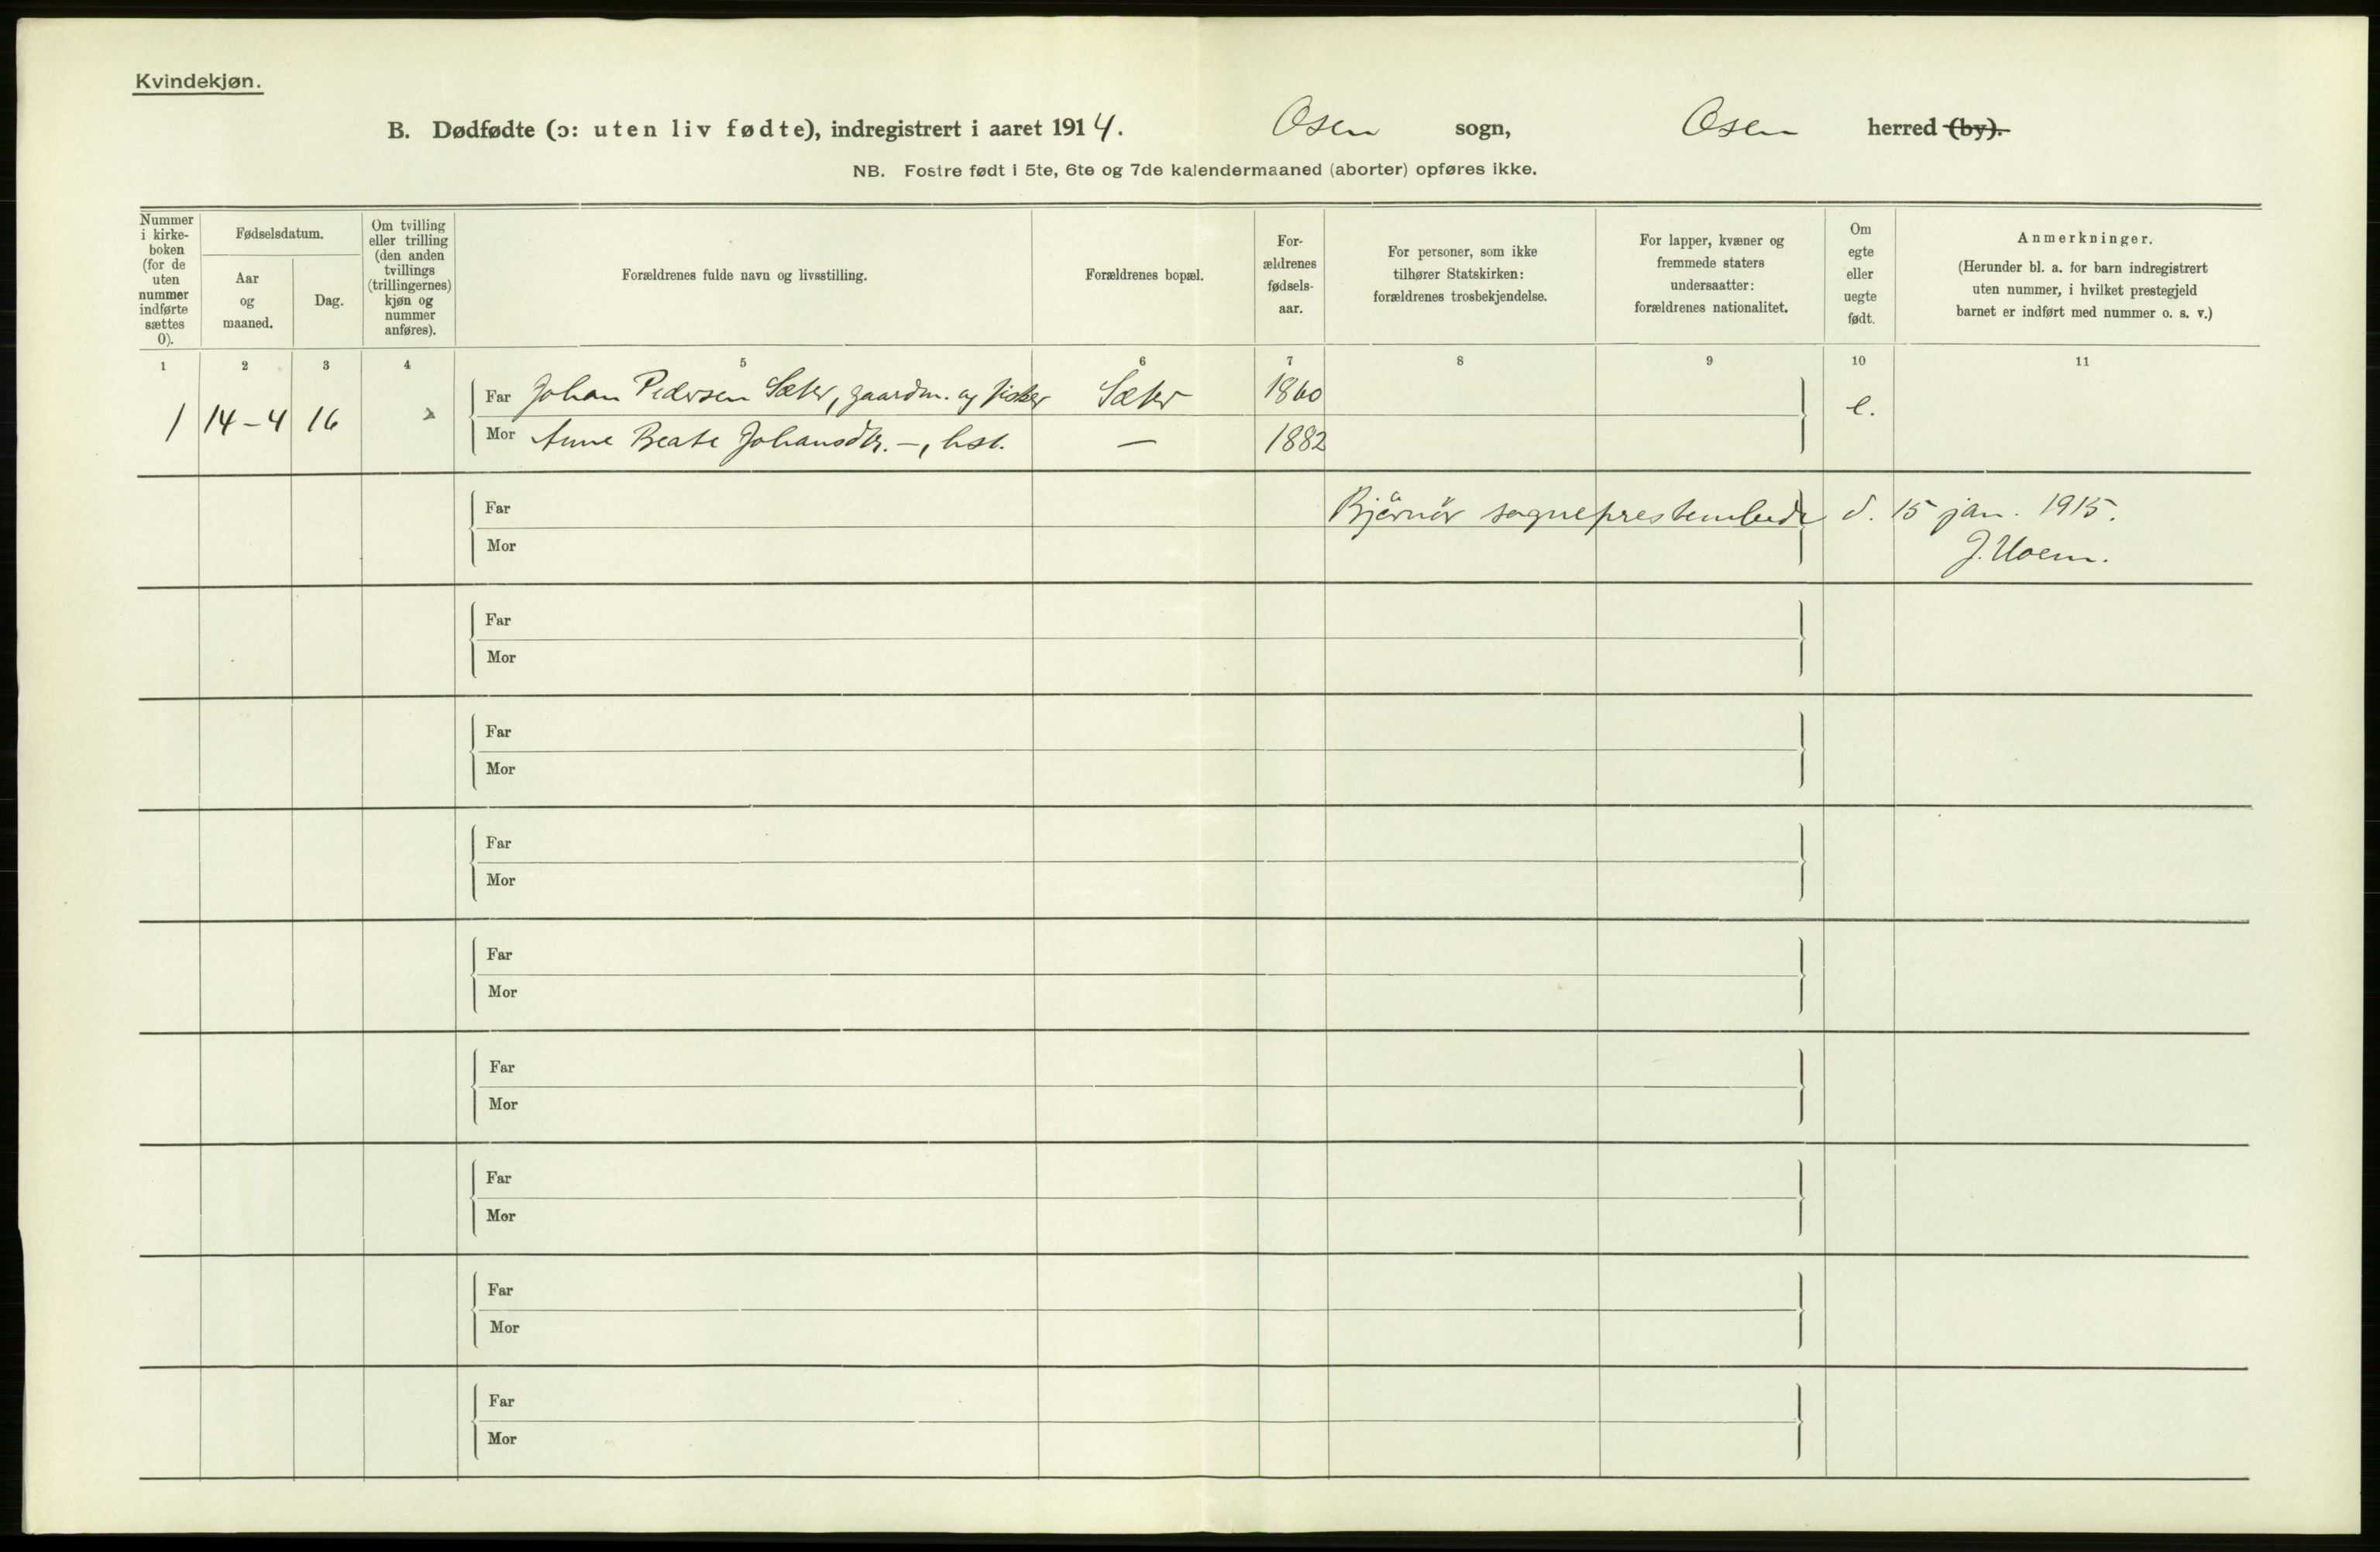 Kvindekjøn.
B. Dødfødte (ɔ: uten liv fødte), indregistrert i aaret 1914. Osen sogn, Osen herred (by).
NB. Fostre født i 5te, 6te og 7de kalendermaaned (aborter) opføres ikke.
Nummer
i kirke-
boken
(for de
uten
nummer
indførte
sættes
0).
Fødselsdatum.
Aar
og
maaned.
Dag.
Om tvilling
eller trilling
(den anden
tvillings
(trillingernes)
kjøn og
nummer
anføres).
Forældrenes fulde navn og livsstilling.
Forældrenes bopæl.
For-
ældrenes
fødsels-
aar.
For personer, som ikke
tilhører Statskirken:
forældrenes trosbekjendelse.
For lapper, kvæner og
fremmede staters
undersaatter:
forældrenes nationalitet.
Om
egte
eller
uegte
født.
Anmerkninger.
(Herunder bl. a. for barn indregistrert
uten nummer, i hvilket prestegjeld
barnet er indført med nummer o. s. v.)
1 2 3 4 5 6 7 8 9 10 11
1 14-4 16
Far Johan Pedersen Sæter, gaardm. og fisker Sæter 1860 e.
Mor Anne Beate Johansdtr. —, hst. — 1882
Far Bjørnør sogneprestembede d. 15 jan. 1915.
Mor J. Moen.
Far
Mor
Far
Mor
Far
Mor
Far
Mor
Far
Mor
Far
Mor
Far
Mor
Far
Mor